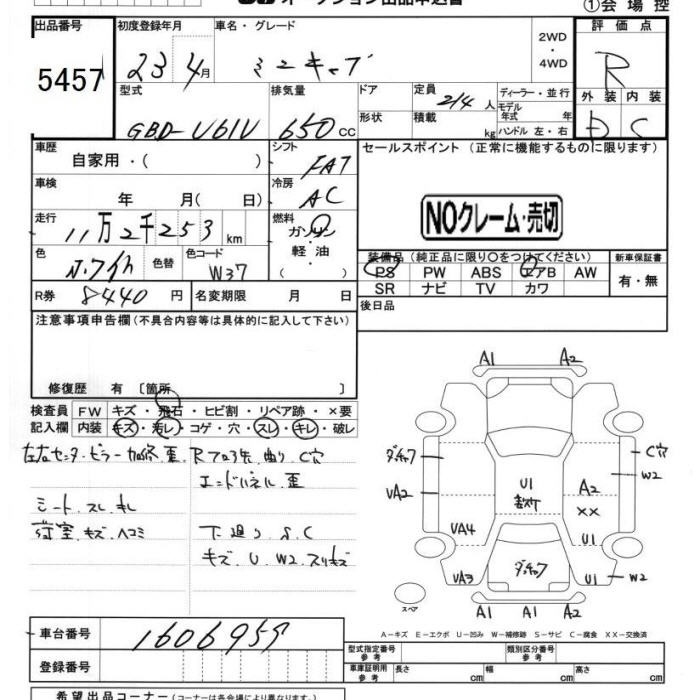 ①会場控
出品番号 初度登録年月 車名・グレード 評価点
5457 23年4月 ミニキャブ 2WD・4WD R
型式 排気量 ドア 定員 ディーラー・並行 外装 内装
GBD-U61V 650cc 2/4人 モデル年式 年 D C
形状 積載 kg ハンドル 左・右
車歴 シフト セールスポイント(正常に機能するものに限ります)
自家用・( ) FAT
車検 冷房
年 月(日) AC
NOクレーム・売切
走行 燃料
11万2千253km ガソリン・軽油・
色 色替 色コード 装備品(純正品に限り○をつけてください) 新車保証書
W37 PS PW ABS エアB AW 有・無
SR ナビ TV カワ
R券 8440円 名変期限 月 日 後日品
注意事項申告欄(不具合内容等は具体的に記入して下さい)
修復歴 有 [箇所 ]
検査員 FW キズ・飛石・ヒビ割・リペア跡・×要
記入欄 内装 キズ・汚レ・コゲ・穴・スレ・キレ・破レ
左右センターピラー 歪 曲り C穴
エンドパネル 歪
シート スレ
キズ ヘコミ 下廻り S.C
キズ U W2 スリキズ
A1 A2
C穴
W2
VA2
U1
A2
XX
VA4
U1
VA3
U1 W2
A1 A1 A2
スペア
A-キズ E-エクボ U-凹み W-補修跡 S-サビ C-腐食 XX-交換済
車台番号 1606959
型式指定番号 参考 類別区分番号 参考
登録番号
車庫証明用 参考 長さ cm 幅 cm 高さ cm
希望出品コーナー(コーナーは各会場により異なります)